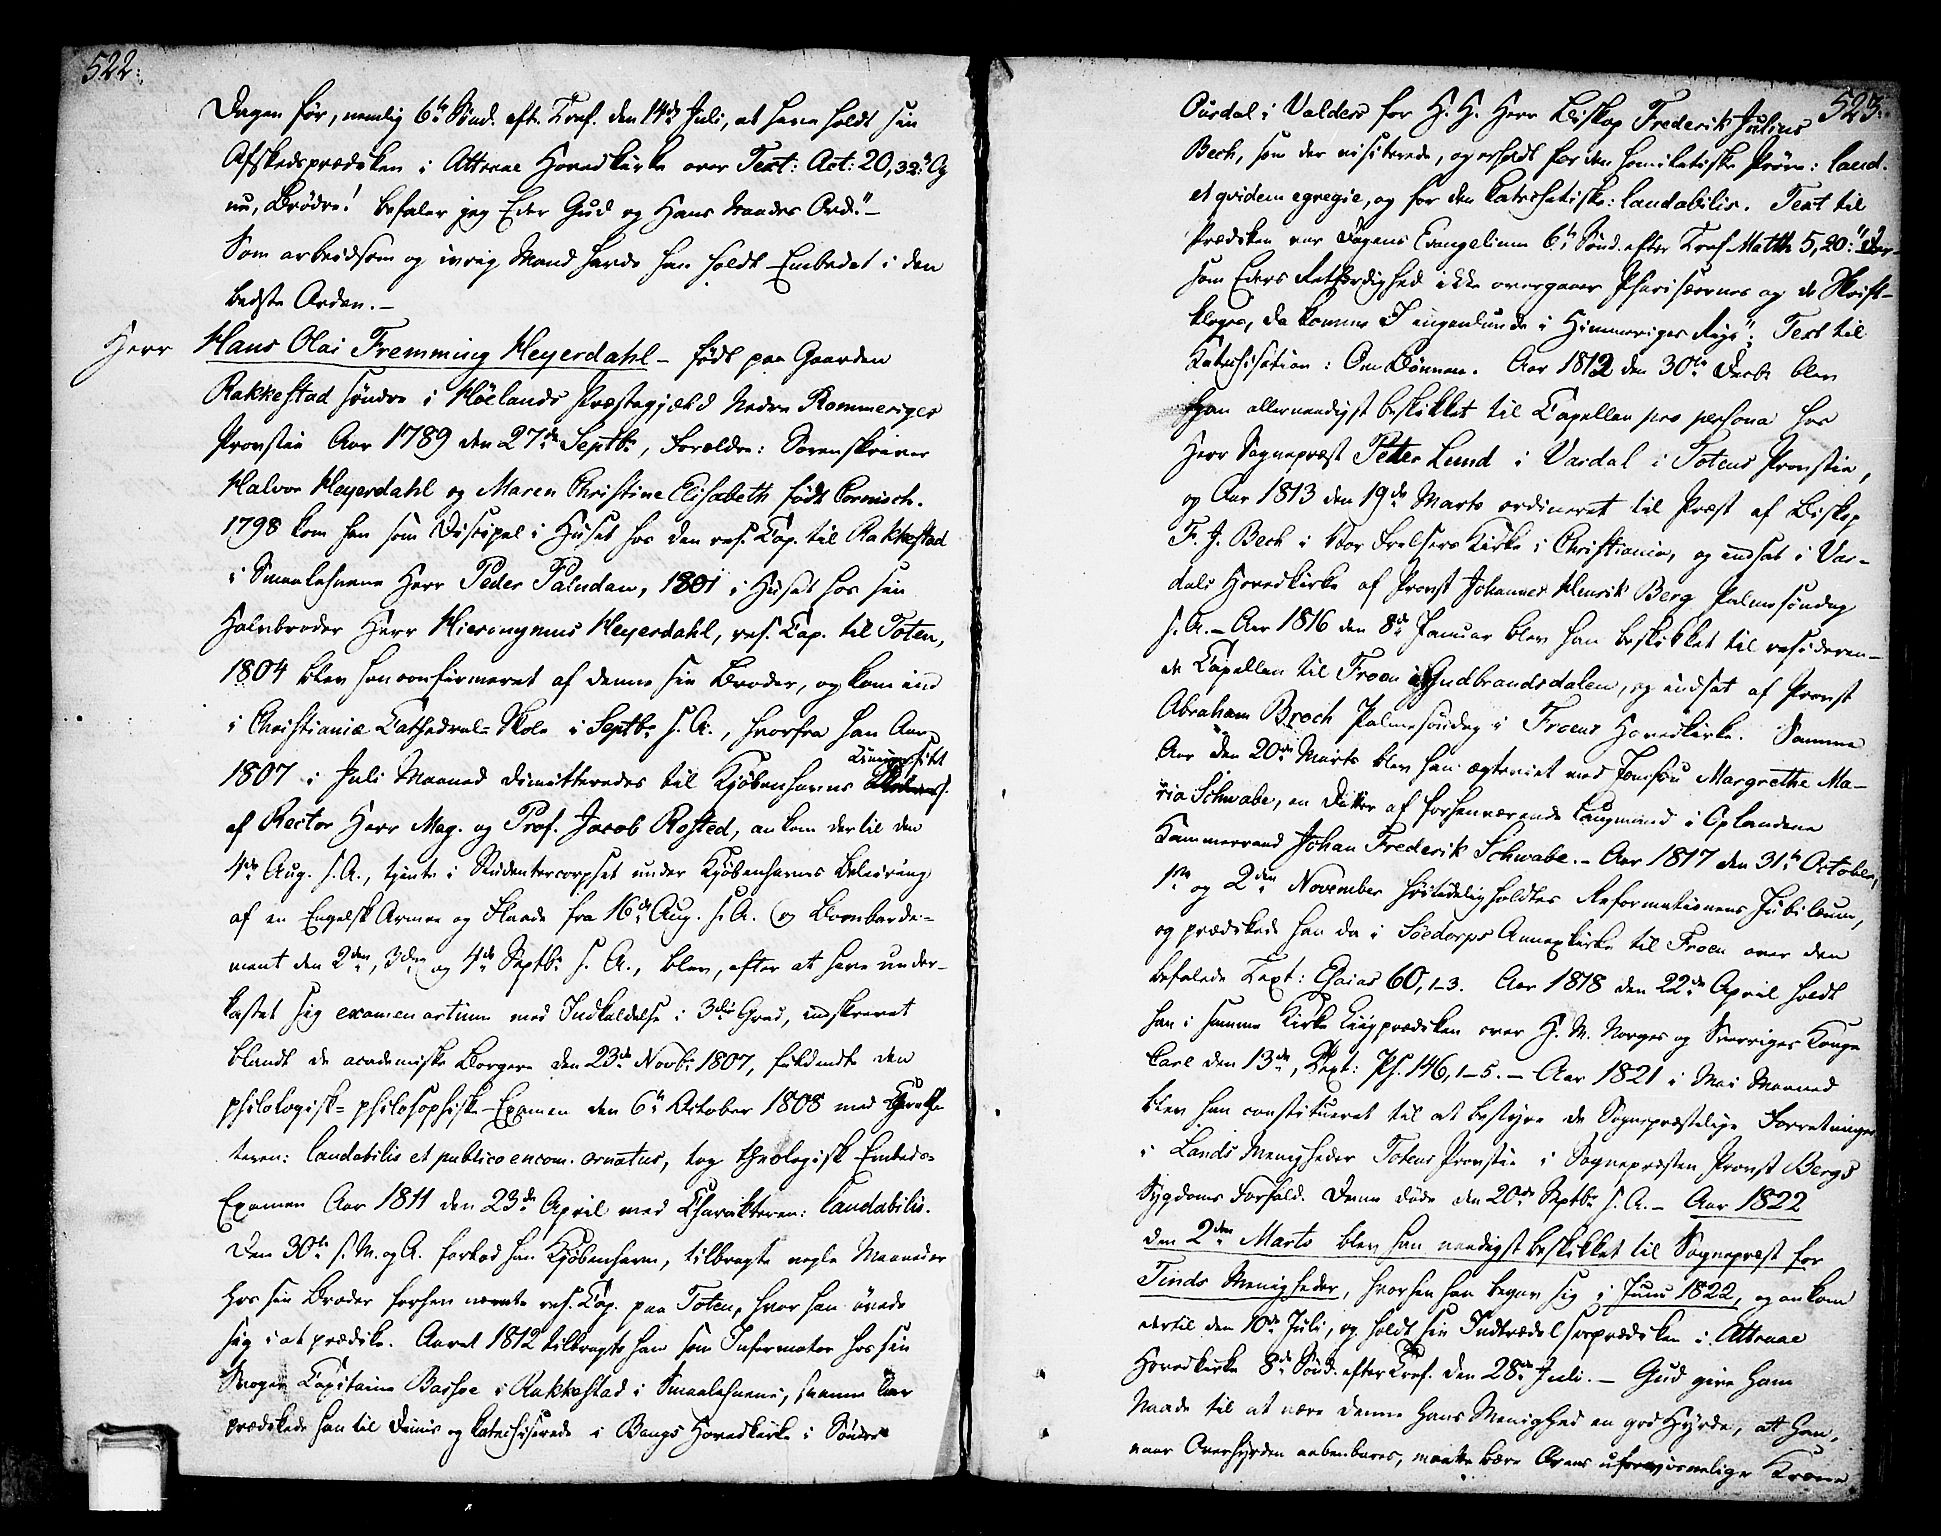 522.
Dagen før, nemlig 6te Sønd. eft. Tref. den 14de Juli, at have holdt sin
Afskedsprædiken i Attraae Hovedkirke over Text: Act: 20,32: "Og
nu, Brødre! befaler jeg Eder Gud og Hans Naades Ord."-
Som arbeidsom og ivrig Mand havde han holdt Embedet i den
bedste Orden.-
Herr Hans Olai Fremming Heyerdahl - født paa Gaarden
Rakkestad søndre i Høelands Præstegjæld Nedre Rommeriges
Provstie Aar 1789 den 27de Septbr, Forældre: Sorenskriver
Halvor Heyerdahl og Maren Christine Elisabeth født Cornisch.
1798 kom han som Discipel i Huset hos den res. Cap. til Rakkestad
i Smaalehnene Herr Peder Paludan, 1801 i Huset hos sin
Halvbroder Herr Hieronymus Heyerdahl, res. Cap. til Toten,
1804 blev han confirmeret af denne sin Broder, og kom ind
i Christiania Cathedral-Skole i Septbr s. A., hvorfra han Aar
1807 i Juli Maaned dimitteredes til Kjøbenhavns Universitet
af Rector Herr Mag. og Prof. Jacob Rosted, ankom dertil den
4de Aug. s. A., tjente i Studentercorpset under Kjøbenhavns Beleiring
af en Engelsk Armee og Flaade fra 16de Aug. s. A. og Bombarde-
ment den 2den, 3die og 4de Septbr s. A., blev, efter at have under-
kastet sig examen artium med Indkaldelse i 3die Grad, indskrevet
blandt de academiske Borgere den 23de Novbr 1807, fuldendte den
philologisk-philosophiske-Examen den 6te October 1808 med Charak-
teren: laudabilis et publico encom. ornatus, tog theologisk Embeds-
Examen Aar 1811 den 23de April med Charakteren: laudabilis.
Den 30te s. M. og A. forlod han Kjøbenhavn, tilbragte nogle Maaneder
hos sin Broder forhen nævnte res. Cap. paa Toten, hvor han øvede
sig i at prædike. Aaret 1812 tilbragte han som Informator hos sin
Svoger Capitaine Bashoe i Rakkestad i Smaalehnene, samme Aar
prædikede han til Dimis og katechiserede i Bangs Hovedkirke i Søndre
523.
Ourdal i Valders for H. H. Herr Biskop Frederik Julius
Bech, som der visiterede, og erholdt for den homiletiske Prøve: laud.
et qvidem egregie, og for den katechetiske: laudabilis. Text til
Prædiken var Dagens Evangelium 6te Sønd. efter Tref Matth 5,20: "Der-
som Eders Retfærdighed ikke overgaaer Phariseernes og de Skrift-
kloges, da komme I ingenlunde i Himmeriges Rige"; Text til
Katechisation: Om Bønnen. Aar 1812 den 30te Decbr blev
han allernaadigst beskikket til Capellan pro persona hos
Herr Sognepræst Peter Lund i Vardal i Totens Provstie,
og Aar 1813 den 19de Marts ordineret til Præst af Biskop
F. J. Bech i Vor Frelsers Kirke i Christiania, og indsat i Var-
dals Hovedkirke af Provst Johannes Henrik Berg Palmesøndag
s. A. - Aar 1816 den 8de Januar blev han beskikket til resideren-
de Capellan til Froen i Gudbrandsdalen, og indsat af Provst
Abraham Broch Palmesøndag i Froens Hovedkirke. Samme
Aar den 20de Marts blev han ægteviet med Jomfru Margrethe Ma-
ria Schwabe, en Datter af forhenværende Laugmand i Oplandene
Kammerraad Johan Frederik Schwabe. - Aar 1817 den 31te October,
1ste og 2den November høitideligholdtes Reformationens Jubilæum,
og prædikede han da i Söedorps Annexkirke til Froen over den
befalede Text: Esaias 60, 1-3. Aar 1818 den 22de April holdt
han i samme Kirke Liigprædiken over H. M. Norges og Sverriges Konge
Carl den 13de, Text: Ps. 146, 1-5. - Aar 1821 i Mai Maaned
blev han constitueret til at bestyre de Sognepræstelige Forretninger
i Lands Menigheder Totens Provstie i Sognepræsten Provst Bergs
Sygdoms Forfald. Denne døde den 20de Septbr s. A. - Aar 1822
den 2den Marts blev han naadigst beskikket til Sognepræst for
Tinds Menigheder, hvorhen han begav sig i Juni 1822, og ankom
dertil den 10de Juli, og holdt sin Indtrædelsesprædiken i Attraae
Hovedkirke 8de Sønd. efter Tref. den 28de Juli. - Gud give ham
Naade til at være denne Hans Menighed en god Hyrde, at han,
naar Overhyrden aabenbares, maatte bære Ærens uforvisnelige Krone